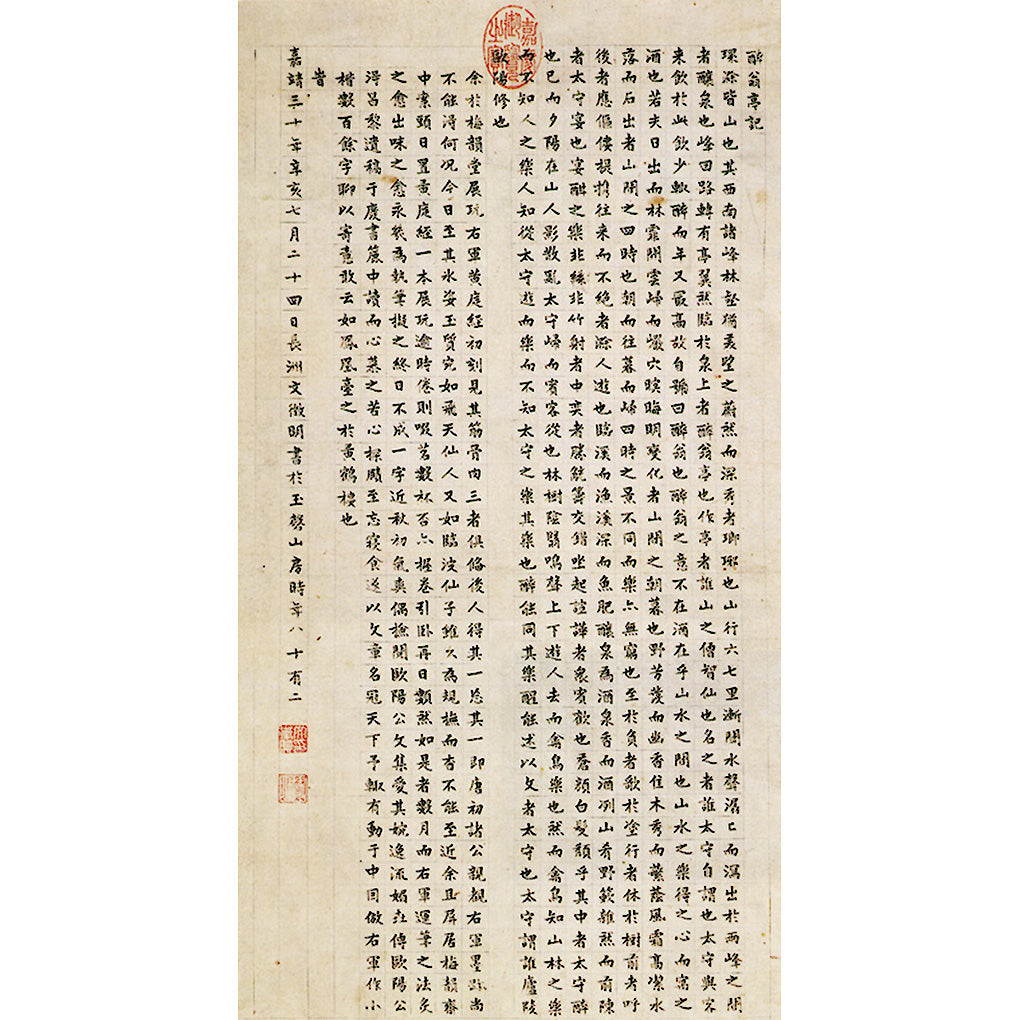 醉翁亭記
環滁皆山也其西南諸峰林壑猶美望之蔚然而深秀者瑯琊也山行六七里漸聞水聲潺々而瀉出於兩峰之間
者釀泉也峰回路轉有亭翼然臨於泉上者醉翁亭也作亭者誰山之僧智仙也名之者誰太守自謂也太守與客
來飲於此飲少輒醉而年又最高故自號曰醉翁也醉翁之意不在酒在乎山水之間也山水之樂得之心而寓之
酒也若夫日出而林霏開雲歸而巖穴暝晦明變化者山間之朝暮也野芳發而幽香佳木秀而繁蔭風霜高潔水
落而石出者山間之四時也朝而往暮而歸四時之景不同而樂亦無窮也至於負者歌於塗行者休於樹前者呼
後者應傴僂提攜往來而不絕者滁人遊也臨溪而漁溪深而魚肥釀泉為酒泉香而酒冽山肴野蔌雜然而前陳
者太守宴也宴酣之樂非絲非竹射者中奕者勝觥籌交錯坐起諠譁者衆賓歡也蒼顏白髮頹乎其中者太守醉
也已而夕陽在山人影散亂太守歸而賓客從也林樹陰翳鳴聲上下遊人去而禽鳥樂也然而禽鳥知山林之樂
而不知人之樂人知從太守遊而樂而不知太守之樂其樂也醉能同其樂醒能述以文者太守也太守謂誰廬陵
歐陽修也
余於梅韻堂展玩右軍黃庭經初刻見其筋骨肉三者俱備後人得其一忘其一即唐初諸公親覩右軍墨跡尚
不能得何況今日至其氷姿玉質宛如飛天仙人又如臨波仙子雖久為規撫而杳不能至近余且屏居梅韻齋
中案頭日置黃庭經一本展玩逾時倦則啜茗數杯否亦握卷引臥再日顥然如是者數月而右軍運筆之法灸
之愈出味之愈永裝為執筆擬之終日不成一字近秋初氣爽偶撿閱歐陽公文集愛其婉逸流媚在傳歐陽公
得呂黎遺稿于廢書簏中讀而心慕之苦心探賾至忘寢食遂以文章名冠天下予輒有動于中因倣右軍作小
楷數百餘字聊以寄意敢云如鳳凰臺之於黃鶴樓也
旹
嘉靖三十年辛亥七月二十四日長洲文徵明書於玉磬山房時年八十有二
嘉慶御覽之寶